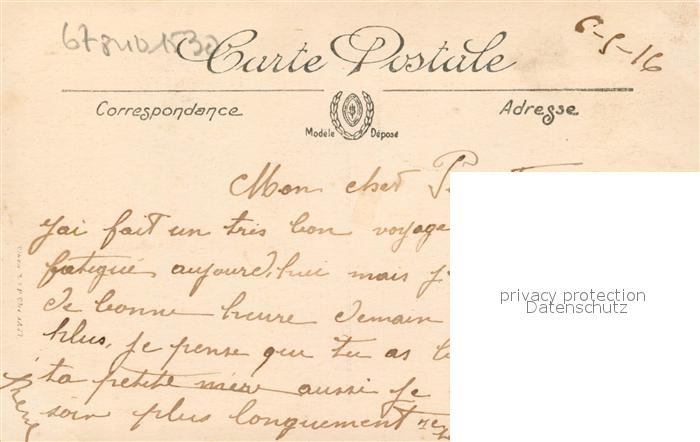 6-5-16
Carte Postale
Correspondance
Adresse
Modèle Déposé
Mon cher
j'ai fait un très bon voyage
fatigué aujourd'hui mais j
de bonne heure demain
plus. je pense que tu as
ta petite mère aussi je
soir plus longuement
privacy protection
Datenschutz